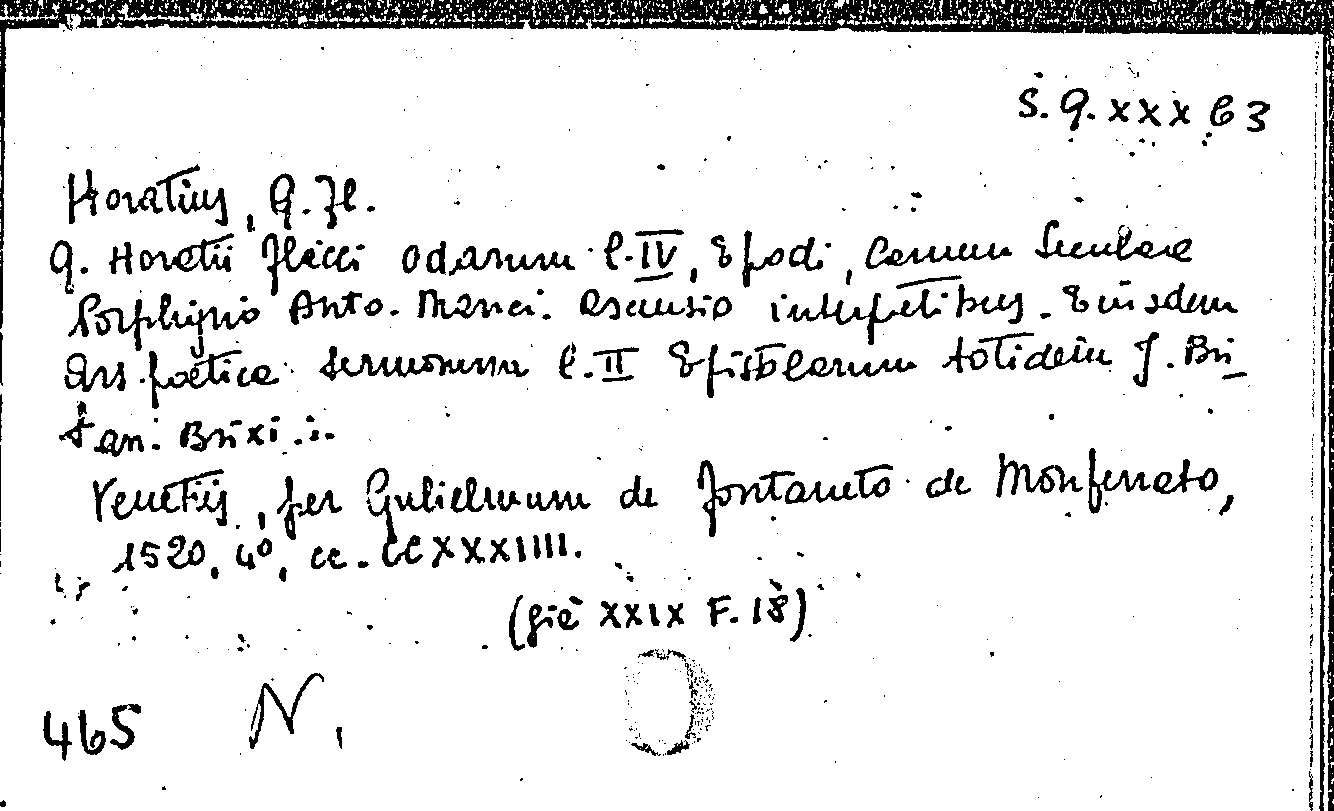 S. Q. XXX C 3
Horatius, Q. Fl.
Q. Horatii Flacci Odarum l. IV, Epodi, Carmen Seculare
Porphyrio Anto. Manci. Ascensio interpetibus. Eiusdem
Ars poetica Sermonum l. II Epistolarum totidem J. Bri_
tan. Brixi...
Venetiis, per Gulielmum de Fontaneto de Monferrato,
1520, 4º, cc. CCXXXIIII.
(già XXIX F. 18)
465 N.